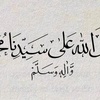 اللّٰه عَلىٰ سَيِّدِنَا
وَآلِهِ وَسَلَّمْ